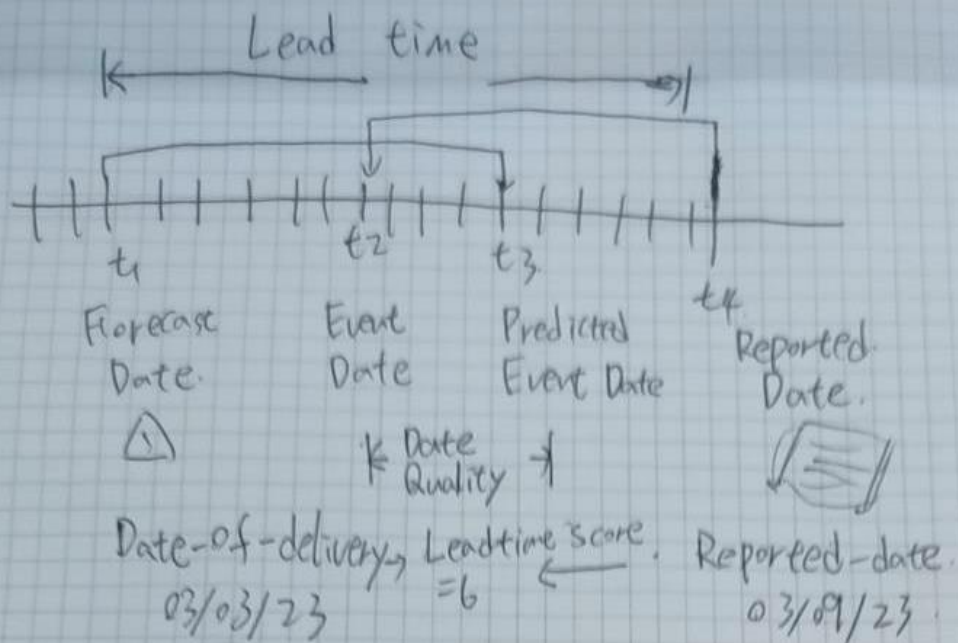 Lead time
t1
t2
t3
t4
Forecast
Date.
Event
Date
Predicted
Event Date
Reported
Date.
Date
Quality
Date-of-delivery
03/03/23
Leadtime score.
=6
Reported-date.
03/09/23.